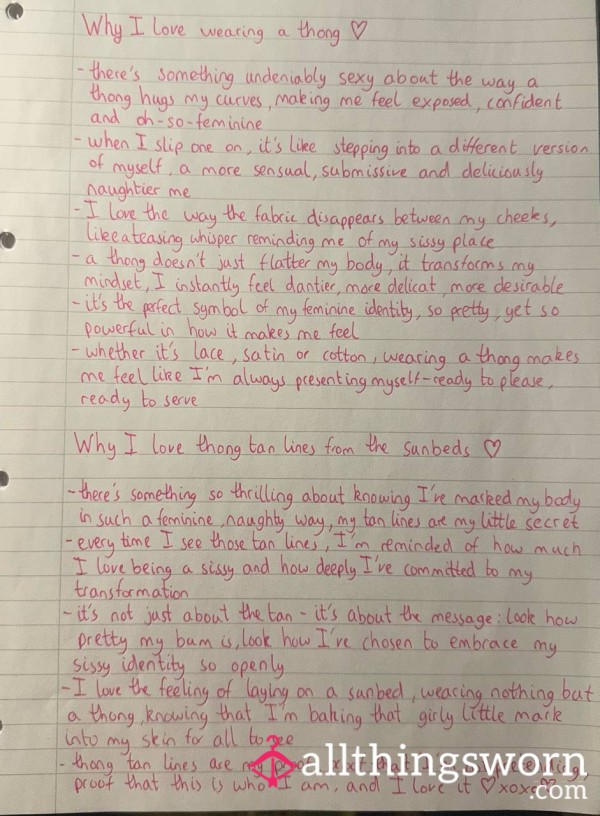 Why I love wearing a thong ♡
- there's something undeniably sexy about the way a
thong hugs my curves, making me feel exposed, confident
and oh-so-feminine
- when I slip one on, it's like stepping into a different version
of myself, a more sensual, submissive and deliciously
naughtier me
- I love the way the fabric disappears between my cheeks,
like a teasing whisper reminding me of my sissy place
- a thong doesn't just flatter my body, it transforms my
mindset, I instantly feel dantier, more delicat, more desirable
- it's the perfect symbol of my feminine identity, so pretty, yet so
powerful in how it makes me feel
- whether it's lace, satin or cotton, wearing a thong makes
me feel like I'm always presenting myself - ready to please,
ready to serve
Why I love thong tan lines from the sunbeds ♡
- there's something so thrilling about knowing I've marked my body
in such a feminine, naughty way, my tan lines are my little secret
- every time I see those tan lines, I'm reminded of how much
I love being a sissy and how deeply I've committed to my
transformation
- it's not just about the tan - it's about the message: look how
pretty my bum is, look how I've chosen to embrace my
sissy identity so openly
- I love the feeling of laying on a sunbed, wearing nothing but
a thong, knowing that I'm baking that girly little mark
into my skin for all to see
- thong tan lines are my
proof that this is who I am, and I love it ♡ xoxo
allthingsworn
.com